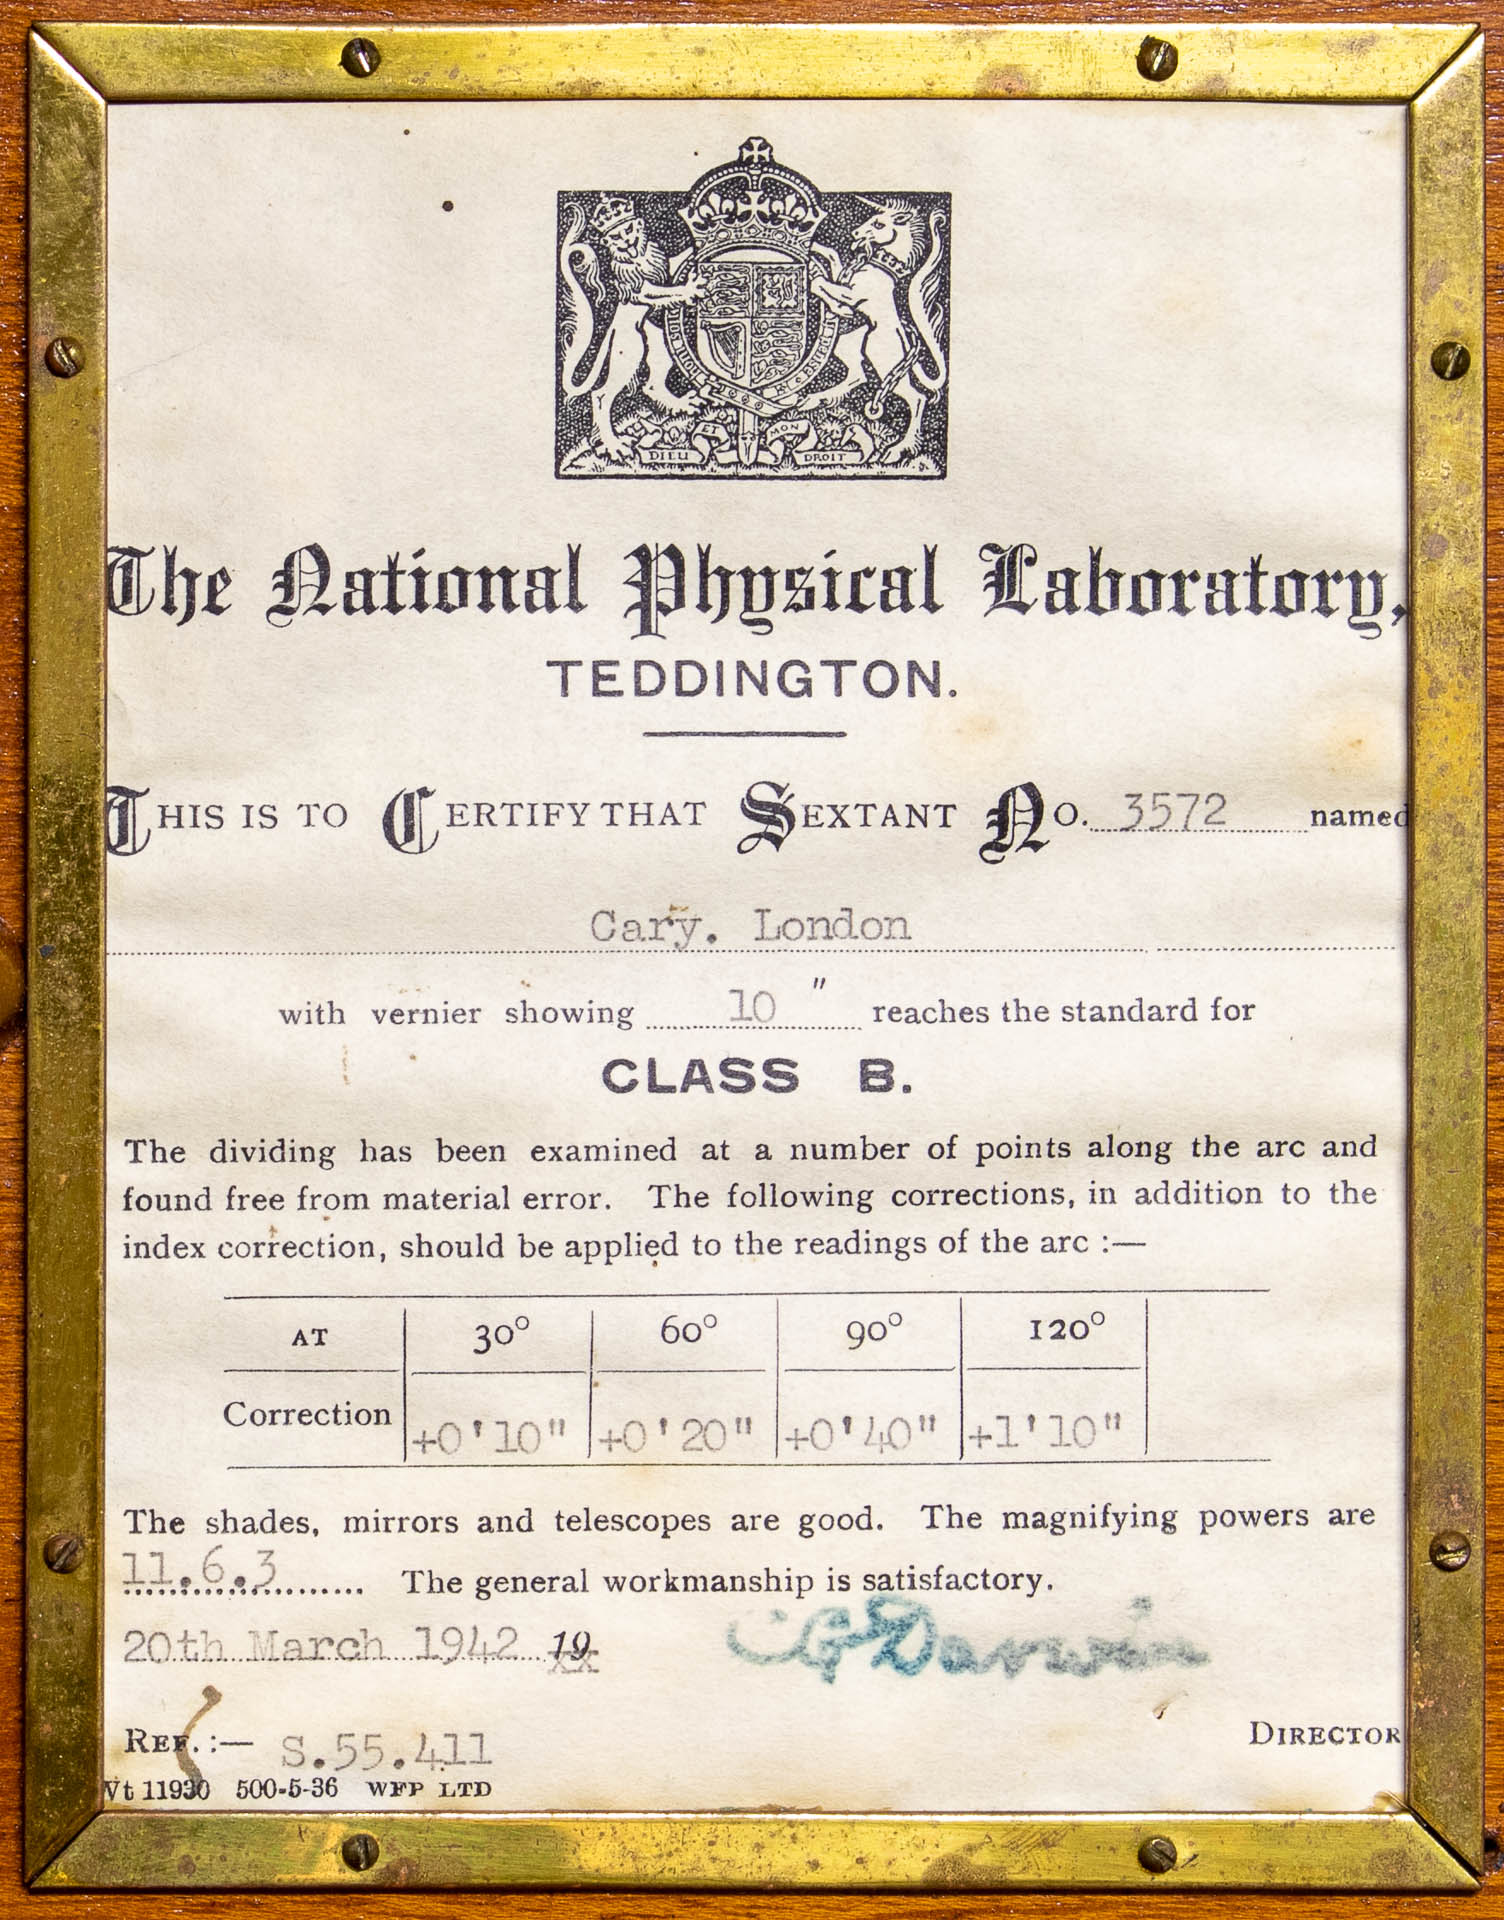 DIEU ET MON DROIT
The National Physical Laboratory,
TEDDINGTON.
THIS IS TO CERTIFY THAT SEXTANT NO. 3572 named
Cary. London
with vernier showing 10" reaches the standard for
CLASS B.
The dividing has been examined at a number of points along the arc and
found free from material error. The following corrections, in addition to the
index correction, should be applied to the readings of the arc :—
AT 30° 60° 90° 120°
Correction +0'10" +0'20" +0'40" +1'10"
The shades, mirrors and telescopes are good. The magnifying powers are
11.6.3 The general workmanship is satisfactory.
20th March 1942 19 C G Darwin
DIRECTOR
REF. :— S.55.411
Vt 11930 500-5-36 WFP LTD